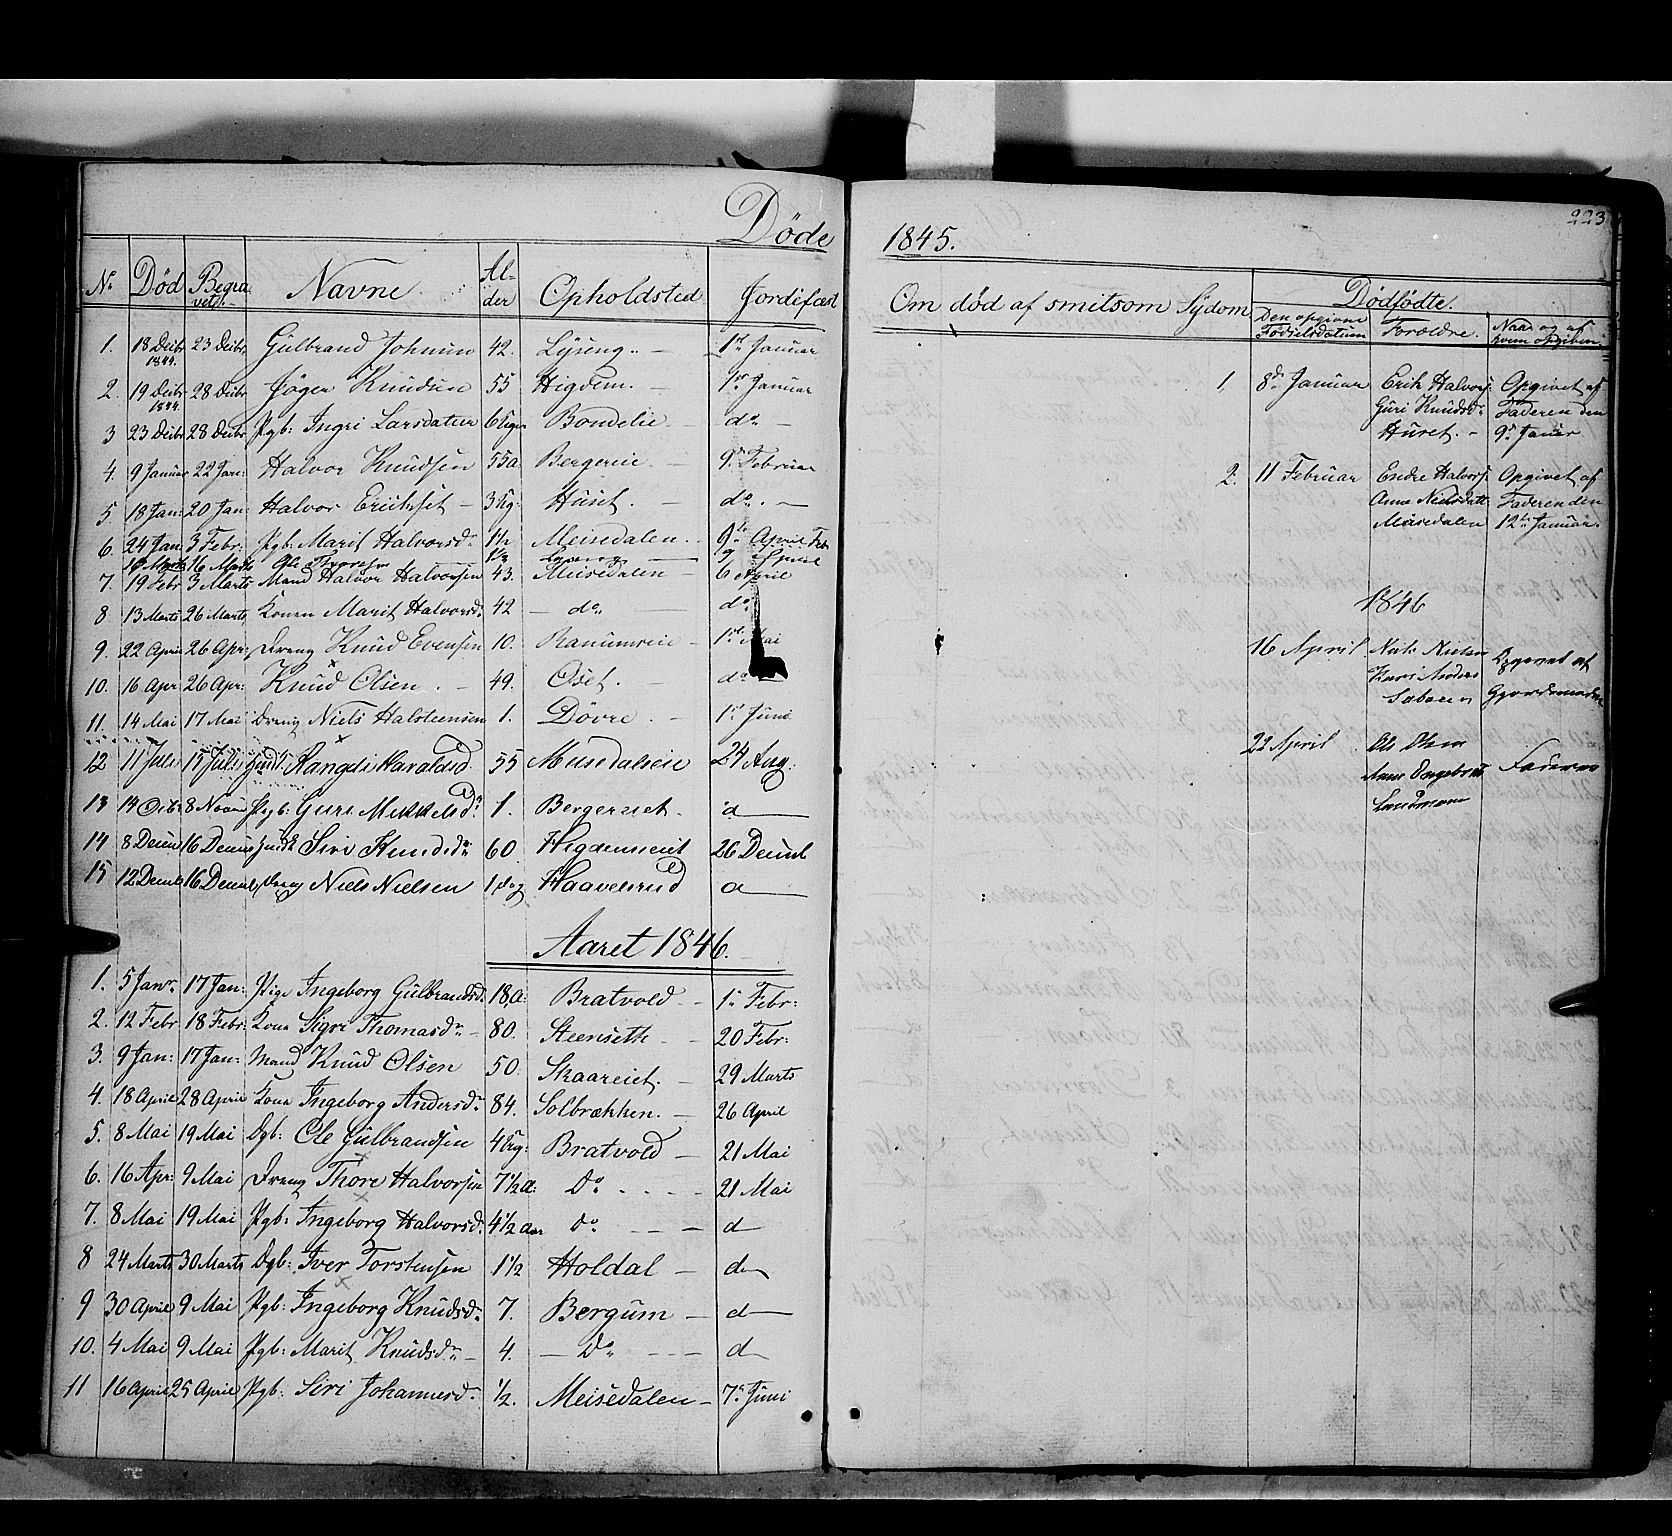 Döde
No Död Begravet. Navne Alder Opholdsted Jordifæst
1. 18 Decbr 1844. 23 Decbr. Gulbrand 42. 1st Januar
2. 19 Decbr 1844. 28 Decbr 55 Higdem. 1st Januar
3 23 Decbr 28 Decbr Pgb: Ingri Larsdatter 6 Uger Bondelie do
4. 9 Januar 22 Jan: Halvor Knudsen 55 a. Bergereie 9 Februar
5 18 Jan: 20 Jan: Halvor 3 Ug: Huset. do.
6. 24 Jan 3 Febr. Pgb: Marit Halvorsd. 1½ Meisedalen 9de April
10 Marts 16 Marts Ole 9 April
7. 19 Febr 3 Marts Mand Halvor Halvorsen 43. Meisedalen 6 April
8 13 Marts 26 Marts Konen Marit Halvorsd. 42 do. do
9. 22 April 26 Apr: Dreng Knud Evensen 10. Ranumseie 1st Mai
10. 16 Apr 26 Apr: Knud Olsen. 49. Oset. do
11. 14 Mai 17 Mai Dreng Niels Halsteensen 1. Dövre. 1st Juni
12 11 Juli 15 Juli Rangdi Haraldsd 55 Musedalseie 24 Aug.
13 14 8 Pgb: Guri Mikkelsd. 1. Bergerriet. d
14 8 Decem 16 Decem Siri Knudsdr 60 26 Decemb
15 12 Decemb 16 Decemb Dreng Niels Nielsen 1 Dag Haavelsrud d
Aaret 1846.
1. 5 Janr. 17 Jan: Pige Ingeborg Gulbrandsd. 18 A: Bratvold 1. Febr:
2. 12 Febr 18 Febr: Kone Sigri Thomasdr 80. Steenseth 20 Febr:
3. 9 Jan: 17 Jan: Mand Knud Olsen 50. Skaareiet. 29 Marts
4. 18 April 28 April Kone Ingeborg Andersdr 84. Solbrækken. 26 April
5. 8 Mai 19 Mai Dgb: Ole Gulbrandsen 4 Ug: Bratvold 21 Mai
6. 16 Apr: 9 Mai Dreng Thore Halvorsen 7½ a: Do 21 Mai
7. 8 Mai 19 Mai Pgb: Ingeborg Halvorsd. 4½ Aar do d
8 24 Marts 30 Marts Dgb: Iver Torstensen 1½ Holdal d
9 30 April 9 Mai Pgb: Ingeborg Knudsd. 7. Bergum d
10. 4 Mai 9 Mai Pgb: Marit Knudsdr 4. Do d
11 16 April 25 April Pgb: Siri Johannesd. ½. Meisedalen 7de Juni
223
1845.
Om död af smitsom Sÿdom
Dödfödte.
Den opgivne Fødselsdatum Forældre. Naar og af hvem opgiven
1. 8de Januar Erik Halvors. Opgivet af
Guri Knudsd. Faderen den
Huset. 9de Januar
2. 11 Februar Endre Halvors. Opgivet af
Anne Nielsdatt Faderen den
Maisedalen 12te Januar.
1846
16 April Niels Nielsen Opgivet af
Kari
22 April Ole Olsen
Anne Faderen